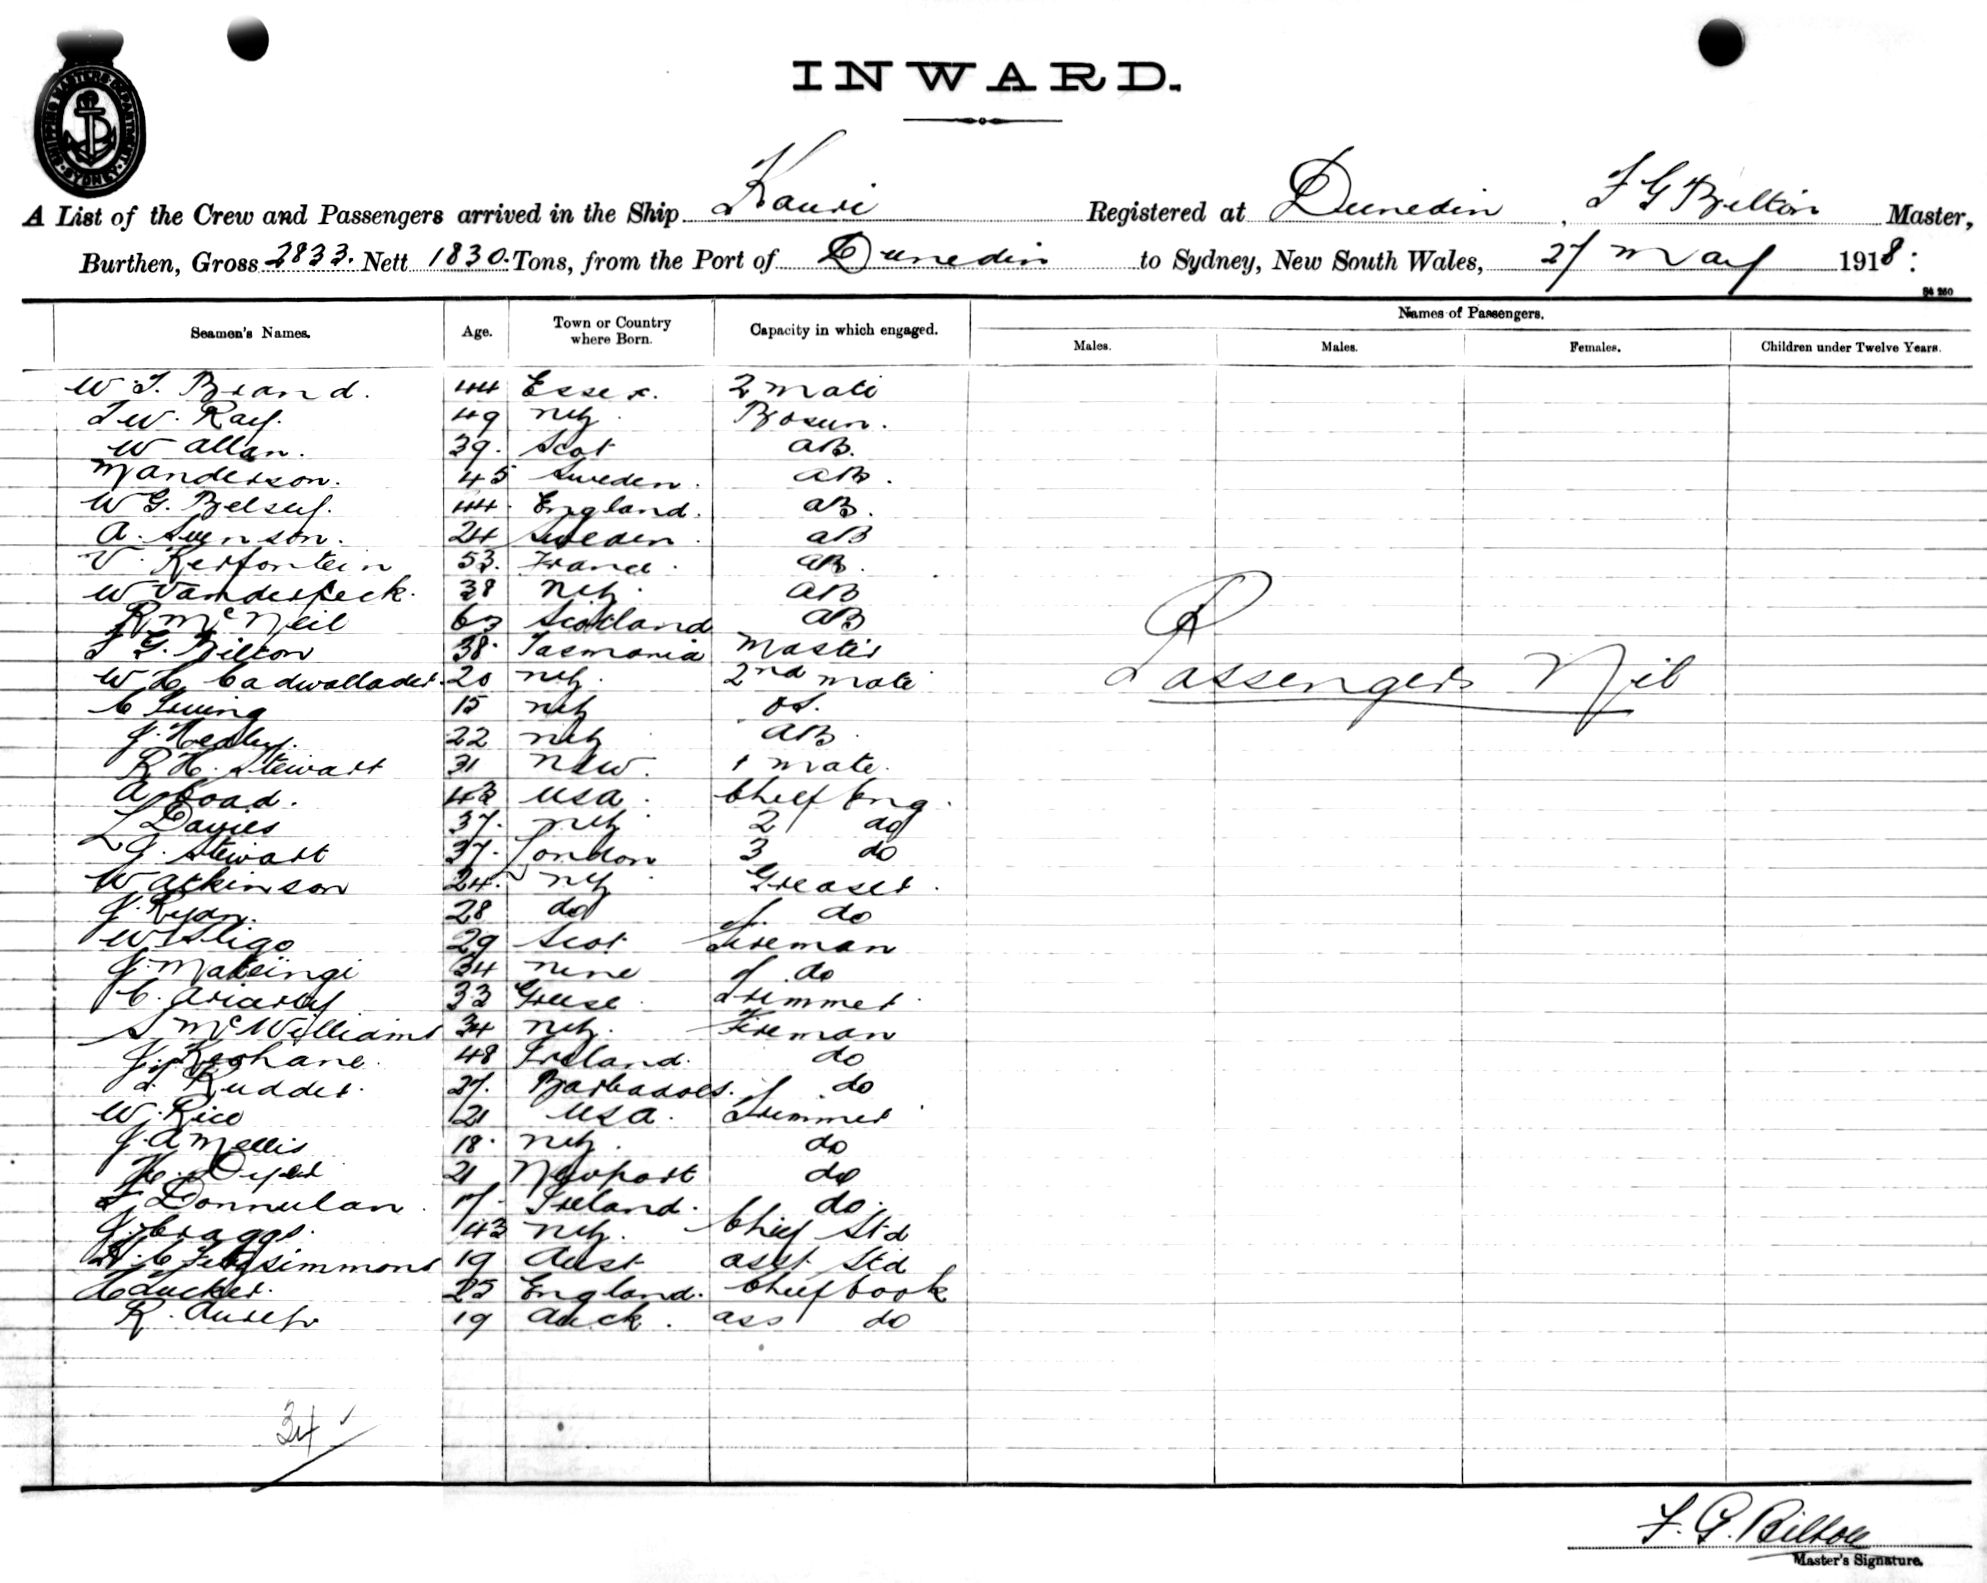 INWARD.
SHIPPING MASTERS DEPARTMENT SYDNEY
A List of the Crew and Passengers arrived in the Ship Kauri Registered at Dunedin, F G Bilton Master,
Burthen, Gross 2833. Nett 1830. Tons, from the Port of Dunedin to Sydney, New South Wales, 27 May 1918:
Seamen's Names. Age. Town or Country where Born. Capacity in which engaged. Names of Passengers.
Males. Males. Females. Children under Twelve Years.
W. J. Brand. 44 Essex. 2 mate
J W. Ray. 49 NZ. Bosun.
W Allan. 39. Scot AB.
M Anderson. 45 Sweden. AB.
W G. Belsey. 44. England. AB.
A. Svenson. 24 Sweden. AB
V. Kerfontein 53. France. AB.
W Vanderpeck. 38 NZ. AB
R McNeil 63 Scotland AB
F G. Bilton 38. Tasmania Master
W C Cadwallader. 20 NZ. 2nd mate
C Irving 15 NZ O.S.
J. Healey. 22 NZ AB.
R H. Stewart 31 NSW. 1 mate.
A Coad. 43 USA. Chief Eng.
L Davies 37. NZ 2 do
L G. Stewart 37. London 3 do
W Atkinson 24. NZ Greaser.
J. Ryan. 28 do do
W Sligo 29 Scot Fireman
J. Mateingi 34 Niue do
C. 33 Greese. Trimmer.
S McWilliams 34 NZ. Fireman
J. Keohane. 48 Ireland. do
Rudder. 27. Barbadoes. do
W. Rice 21 USA. Trimmer
J. A Mellis 18. NZ. do
H. Dyer 21 Newport do
F. Donnulan. 17. Ireland. do.
J. Craggs. 43 NZ. Chief Std
H. C Fitzsimmons 19 Aust asst Std
C Tucker. 25 England. Chief Cook
R. 19 Auck. ass do
Passengers Nil
34
F. G. Bilton
Master's Signature.